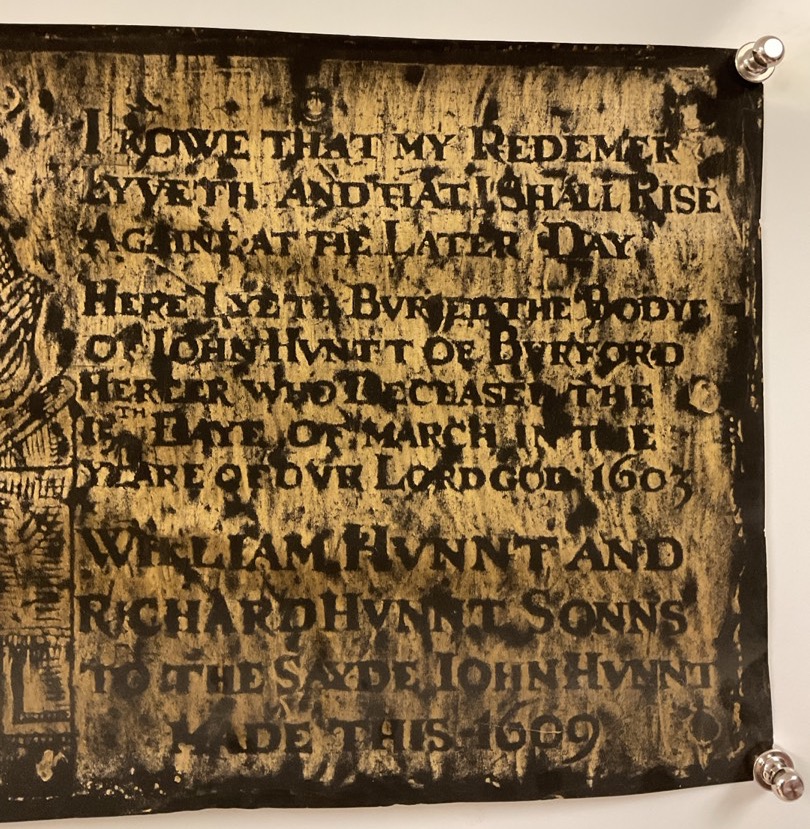 I KOWE THAT MY REDEMER
LYVETH AND THAT I SHALL RISE
AGAINE AT THE LATER DAY
HERE LYETH BVRIED THE BODYE
OF IOHN HVNTT OF BVRFORD
WHO DECEASED THE
DAYE OF MARCH IN THE
YEARE OF OVR LORD GOD 1603
WILLIAM HVNNT AND
RICHARD HVNNT SONNS
TO THE SAYDE IOHN HVNNT
MADE THIS 1609